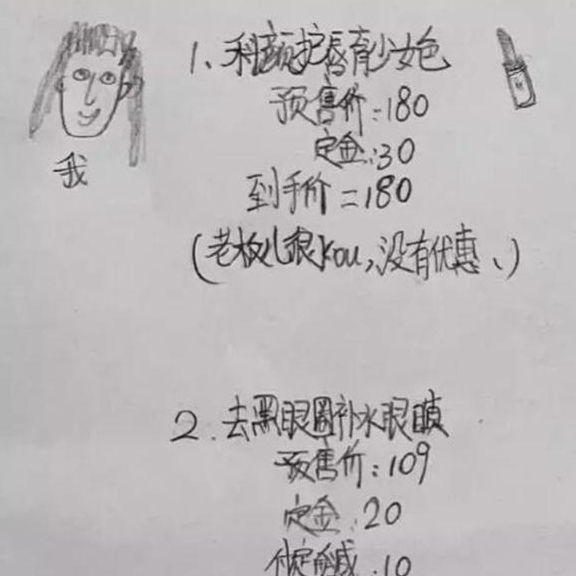 我
1、科颜护唇膏少女色
预售价:180
定金:30
到手价=180
(老板儿很kou,没有优惠、)
2.去黑眼圈补水眼膜
预售价:109
定金:20
付定金减:10